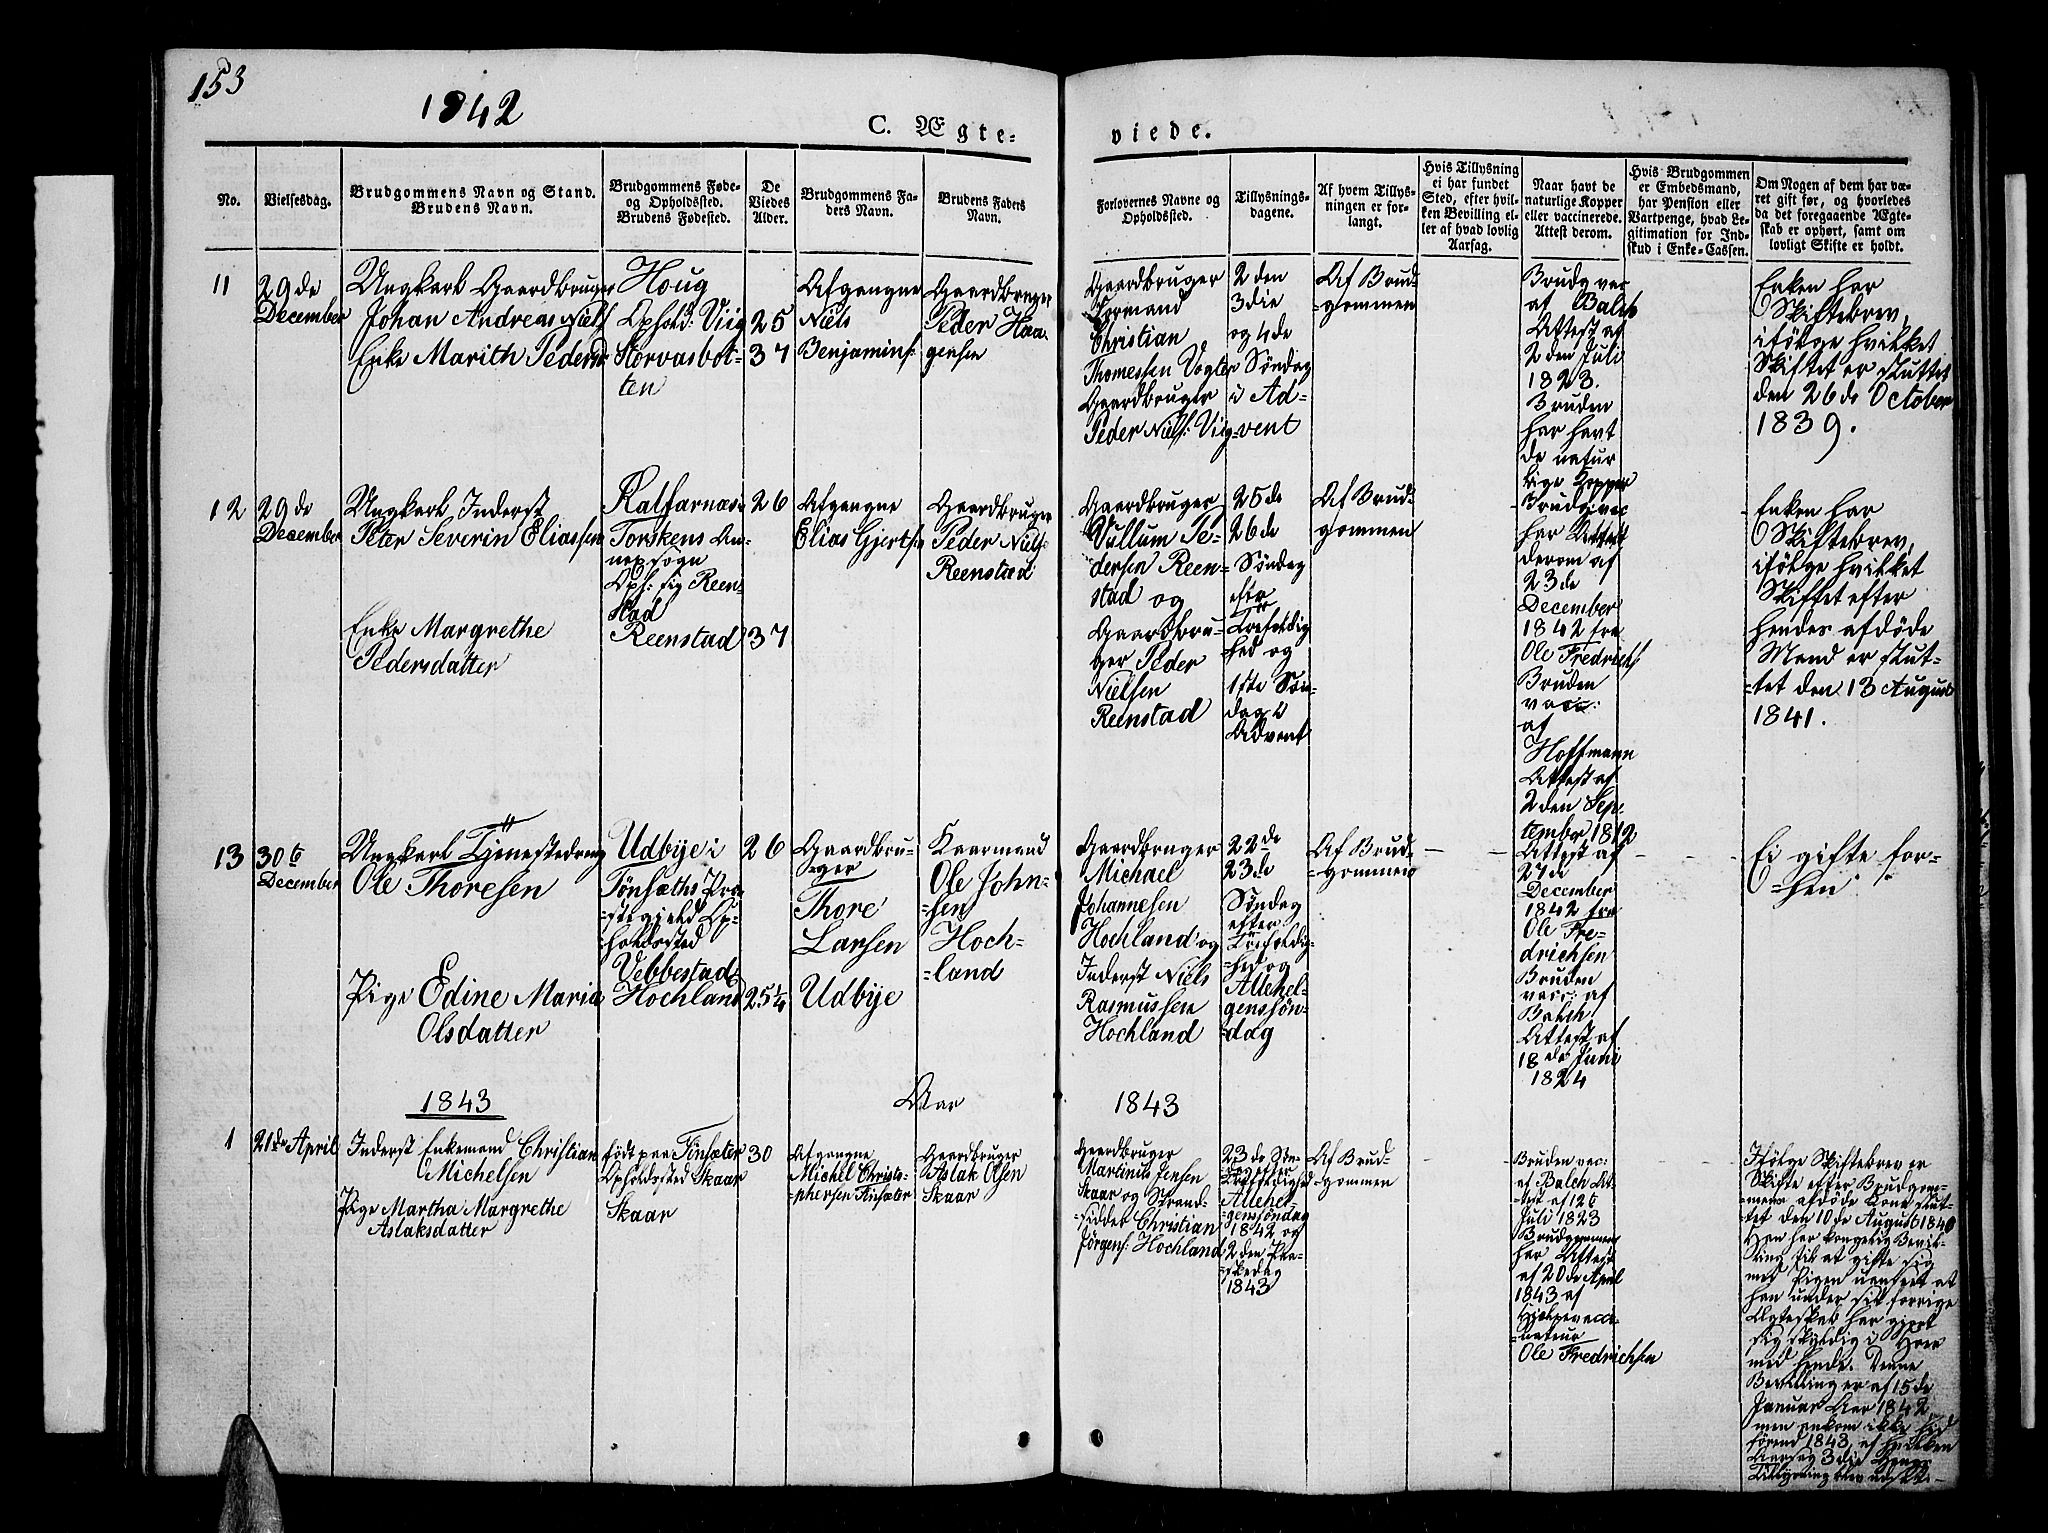 153
1842
C. Ægte-
viede.
No.
Vielsesdag.
Brudgommens Navn og Stand.
Brudens Navn.
Brudgommens Føde-
og Opholdssted.
Brudens Fødested.
De
Viedes
Alder.
Brudgommens Fa-
ders Navn.
Brudens Faders
Navn.
Forlovernes Navne og
Opholdssted.
Tillysnings-
dagene.
Af hvem Tillys-
ningen er for-
langt.
Hvis Tillysning
ei har fundet
Sted, efter hvil-
ken Bevilling el-
ler af hvad lovlig
Aarsag.
Naar havt de
naturlige Kopper
eller vaccinerede.
Attest derom.
Hvis Brudgommen
er Embedsmand,
har Pension eller
Vartpenge, hvad Le-
gitimation for Ind-
skud i Enke-Cassen.
Om Nogen af dem har væ-
ret gift før, og hvorledes
da det foregaaende Ægte-
skab er ophørt, samt om
lovligt Skifte er holdt.
11
29de
December
Ungkarl Gaardbruger
Johan Andreas Niels
Enke Marith Peders
Houg
Ophold: Viig
Storvasbot-
ten
25
37
Afgangne
Niels
Benjamins:
Gaardbruger
Peder Haa-
gensen
Gaardbruger
Formand
Christian
Thomessen Vogter
Gaardbruger
Peder Niels: Viig
2den
3die
og 4de
Søndag
i Ad-
vent
Af Brud-
gommen
Brudg vac
af Balch
Attest af
2den Juli
1823.
Bruden
har havt
de natur
lige Kopper
Enken har
Skiftebrev,
ifølge hvilket
Skiftet er sluttet
den 26de October
1839.
12
29de
December
Ungkarl Inderst
Peter Severin Eliassen
Enke Margrethe
Pedersdatter
Kalfarnæs
Torskens An-
nexsogn
Oph: sig Reen-
stad
Reenstad
26
37
Afgangne
Elias Gjerts:
Gaardbruger
Peder Niels:
Reenstad
Gaardbruger
Vullum Pe-
dersen Reen-
stad og
Gaardbru-
ger Peder
Nielsen
Reenstad
25de
26de
Søndag
efter
Trefoldig
hed og
1ste Søn-
dag i
Advent
Af Brud-
gommen
Brudg vac
har Attest
derom af
23de
December
1842 fra
Ole Fredrichs
Bruden
vacc:
af
Hoffmann
Attest af
2den Sep
tember 1812
Enken har
Skiftebrev,
ifølge hvilket
Skiftet efter
hendes afdøde
Mand er slut-
tet den 13 August
1841.
13
30te
December
Ungkarl Tjenestedreng
Ole Thoresen
Pige Edine Maria
Olsdatter
Udbye i
Tønsæths Præ
stegjeld Op-
holdssted
Vebbestad
Hochland
26
25¼
Gaardbru-
ger
Thore
Larsen
Udbye
Kaarmand
Ole John-
sen
Hoch-
land
Gaardbruger
Michael
Johannesen
Hochland og
Inderst Niels
Rasmussen
Hochland
22de
23de
Søndag
efter
Trefoldig-
hed og
Allehel-
genssøn-
dag
Af Brud-
gommen
Attest af
27de
December
1842 fra
Ole Fre-
drichsen
Bruden
vacc: af
Balch
Attest af
18de Juni
1824
Ei gifte for-
hen
1843
Aar
1843
1
21de April
Inderst Enkemand Christian
Michelsen
Pige Martha Margrethe
Aslaksdatter
født paa Finsæter
Opholdssted Skaar
Skaar
30
Afgangne
Michel Christo-
phersen Finsæter
Gaardbruger
Aslak Olsen
Skaar
Gaardbruger
Martinus Jensen
Skaar og Strand-
sidder Christian
Jørgens: Hochland
23de Søn-
dag efter
Trefoldighed
Allehel-
genssøndag
1842 og
2den Paa-
skedag
1843
Af Brud-
gommen
Bruden vac:
af Balch At-
test af 12te
Juli 1823
Brudgommen
har Attest
af 20de April
1843 af
Hjælpevacci-
nateur
Ole Fredrichsen
Ifølge Skiftebrev er
Skifte efter Brudgom-
mens afdøde Kone slut-
tet den 10de August 1840
Han har kongelig Bevil-
ling til at gifte sig
med Pigen uanseet at
han under sit forrige
Ægteskab har gjort
sig skyldig i Hoer
med hende. Denne
Bevilling er af 15de
Januar Aar 1842,
men ankom ikke hid
førend 1843, af hvilken
Aarsag 3die Gangs
Tillysning blev udsat.